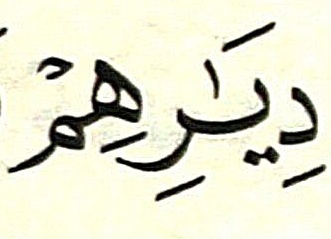 دِيَـٰرِهِمْ